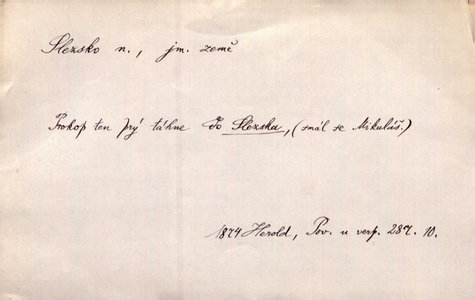 Slezsko n., jm. země
Prokop ten prý táhne do Slezska, (smál se Mikuláš.)
1874 Herold, Pov. u verp. 287. 10.